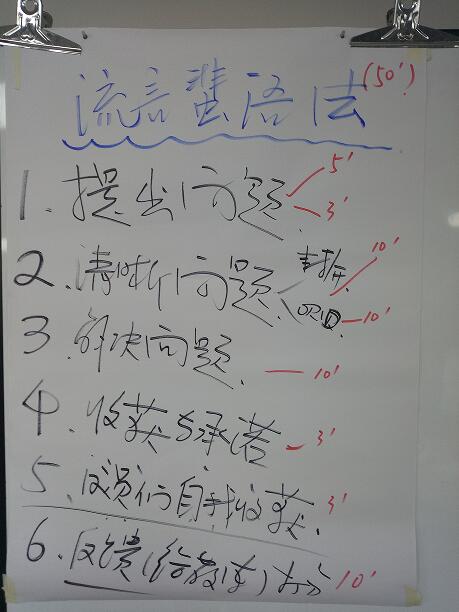 流言蜚语法 (50')
1. 提出问题 5'
3'
2. 清晰问题 10'
ORID — 10'
3. 解决问题. — 10'
4. 收获与承诺 — 3'
5. 成员们自我收获. 3'
6. 反馈(给教练) 10'